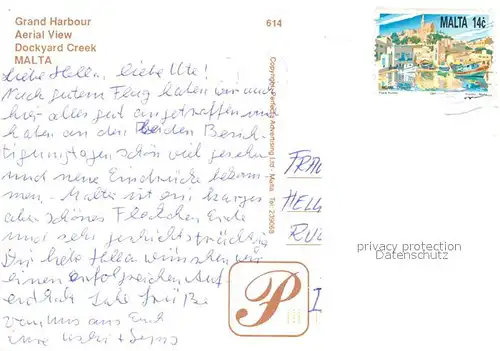 Grand Harbour
Aerial View
Dockyard Creek
MALTA
614
MALTA 14c
Copyright - Perfecta Advertising Ltd - Malta. Tel: 239069
Liebe Hella, liebe Ute!
Nach gutem Flug haben wir auch
hier alles gut angetroffen und
haben an den beiden Besich-
tigungstagen schon viel gesehen
und neue Eindrücke bekom-
men. Malta ist ein karges
aber schönes Fleckchen Erde
und sehr geschichtsträchtig
Dir liebe Hella wünschen wir
einen erfolgreichen Auf-
enthalt. Liebe Grüße
von uns aus Euch
FRAU
HELL
privacy protection
Datenschutz
P